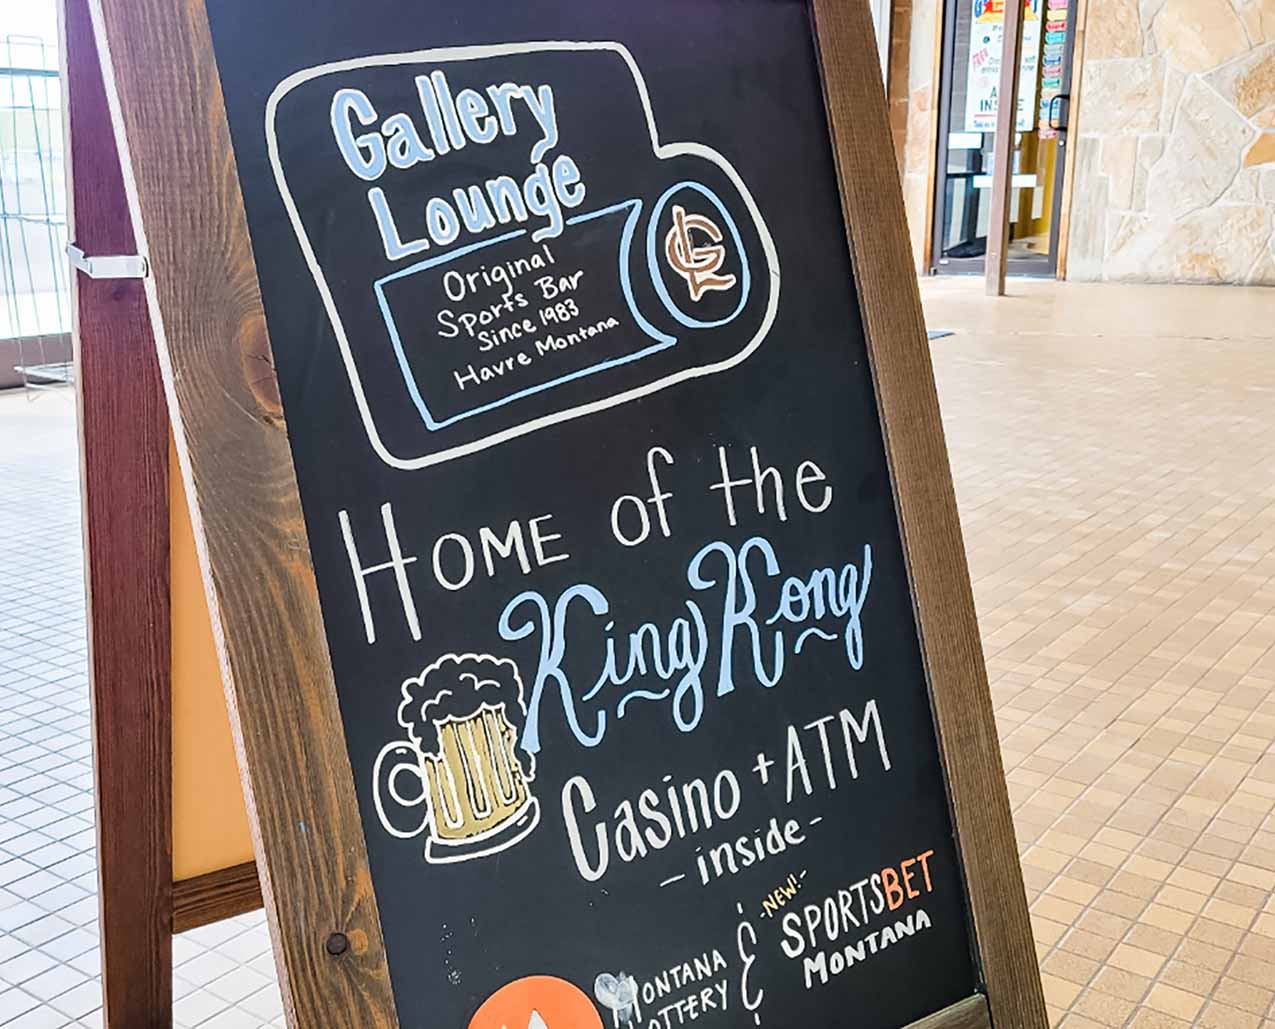 Gallery
Lounge
Original
Sports Bar
Since 1983
Havre Montana
GL
HOME of the
King Kong
Casino + ATM
- inside -
MONTANA
LOTTERY
&
-NEW!-
SPORTSBET
MONTANA